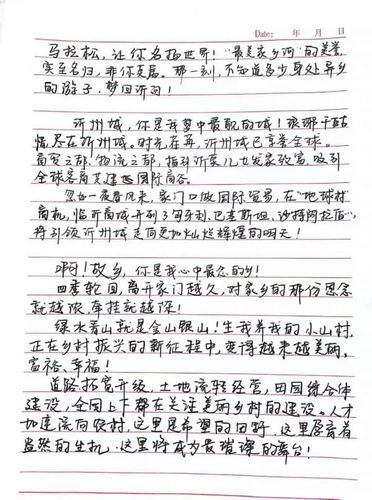 Date: 年 月 日
马拉松，让你名扬世界！“最美家乡河”的美誉，
实至名归，非你莫属。那一刻，不知道多少身处异乡
的游子，梦回沂河！
沂州城，你是我梦中最靓的城！琅琊千古
情尽在沂州城。时光在再，沂州城已享誉全球。
商贸之都、物流之都，指引沂蒙儿女发家致富，吸引
全球客商共建国际商谷。
忽如一夜春风来，家门口做国际贸易，在“地球村”
商机，临沂商城开到了匈牙利、巴基斯坦、沙特阿拉伯，
将引领沂州城走向更加灿烂辉煌的明天！
啊！故乡，你是我心中最念的乡！
四季轮回，离开家门越久，对家乡的那份思念
就越浓，牵挂就越深！
绿水青山就是金山银山！生我养我的小山村，
正在乡村振兴的新征程中，变得越来越美丽、
富裕、幸福！
道路拓宽升级，土地流转经营，田园综合体
建设，全国上下都在关注美丽乡村的建设。人才
加速流向农村，这里是希望的田野，这里孕育着
盎然的生机，这里将成为最璀璨的舞台！